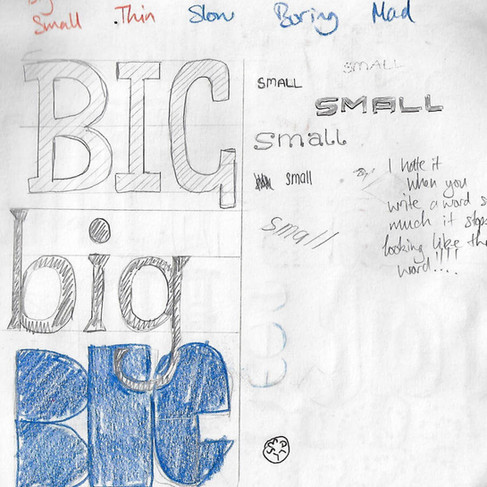 Small .Thin Slow Boring Mad
BIG
big
BIG
SMALL
SMALL
SMALL
small
small
small
I hate it
when you
write a word s
much it stops
looking like the
word!!!!